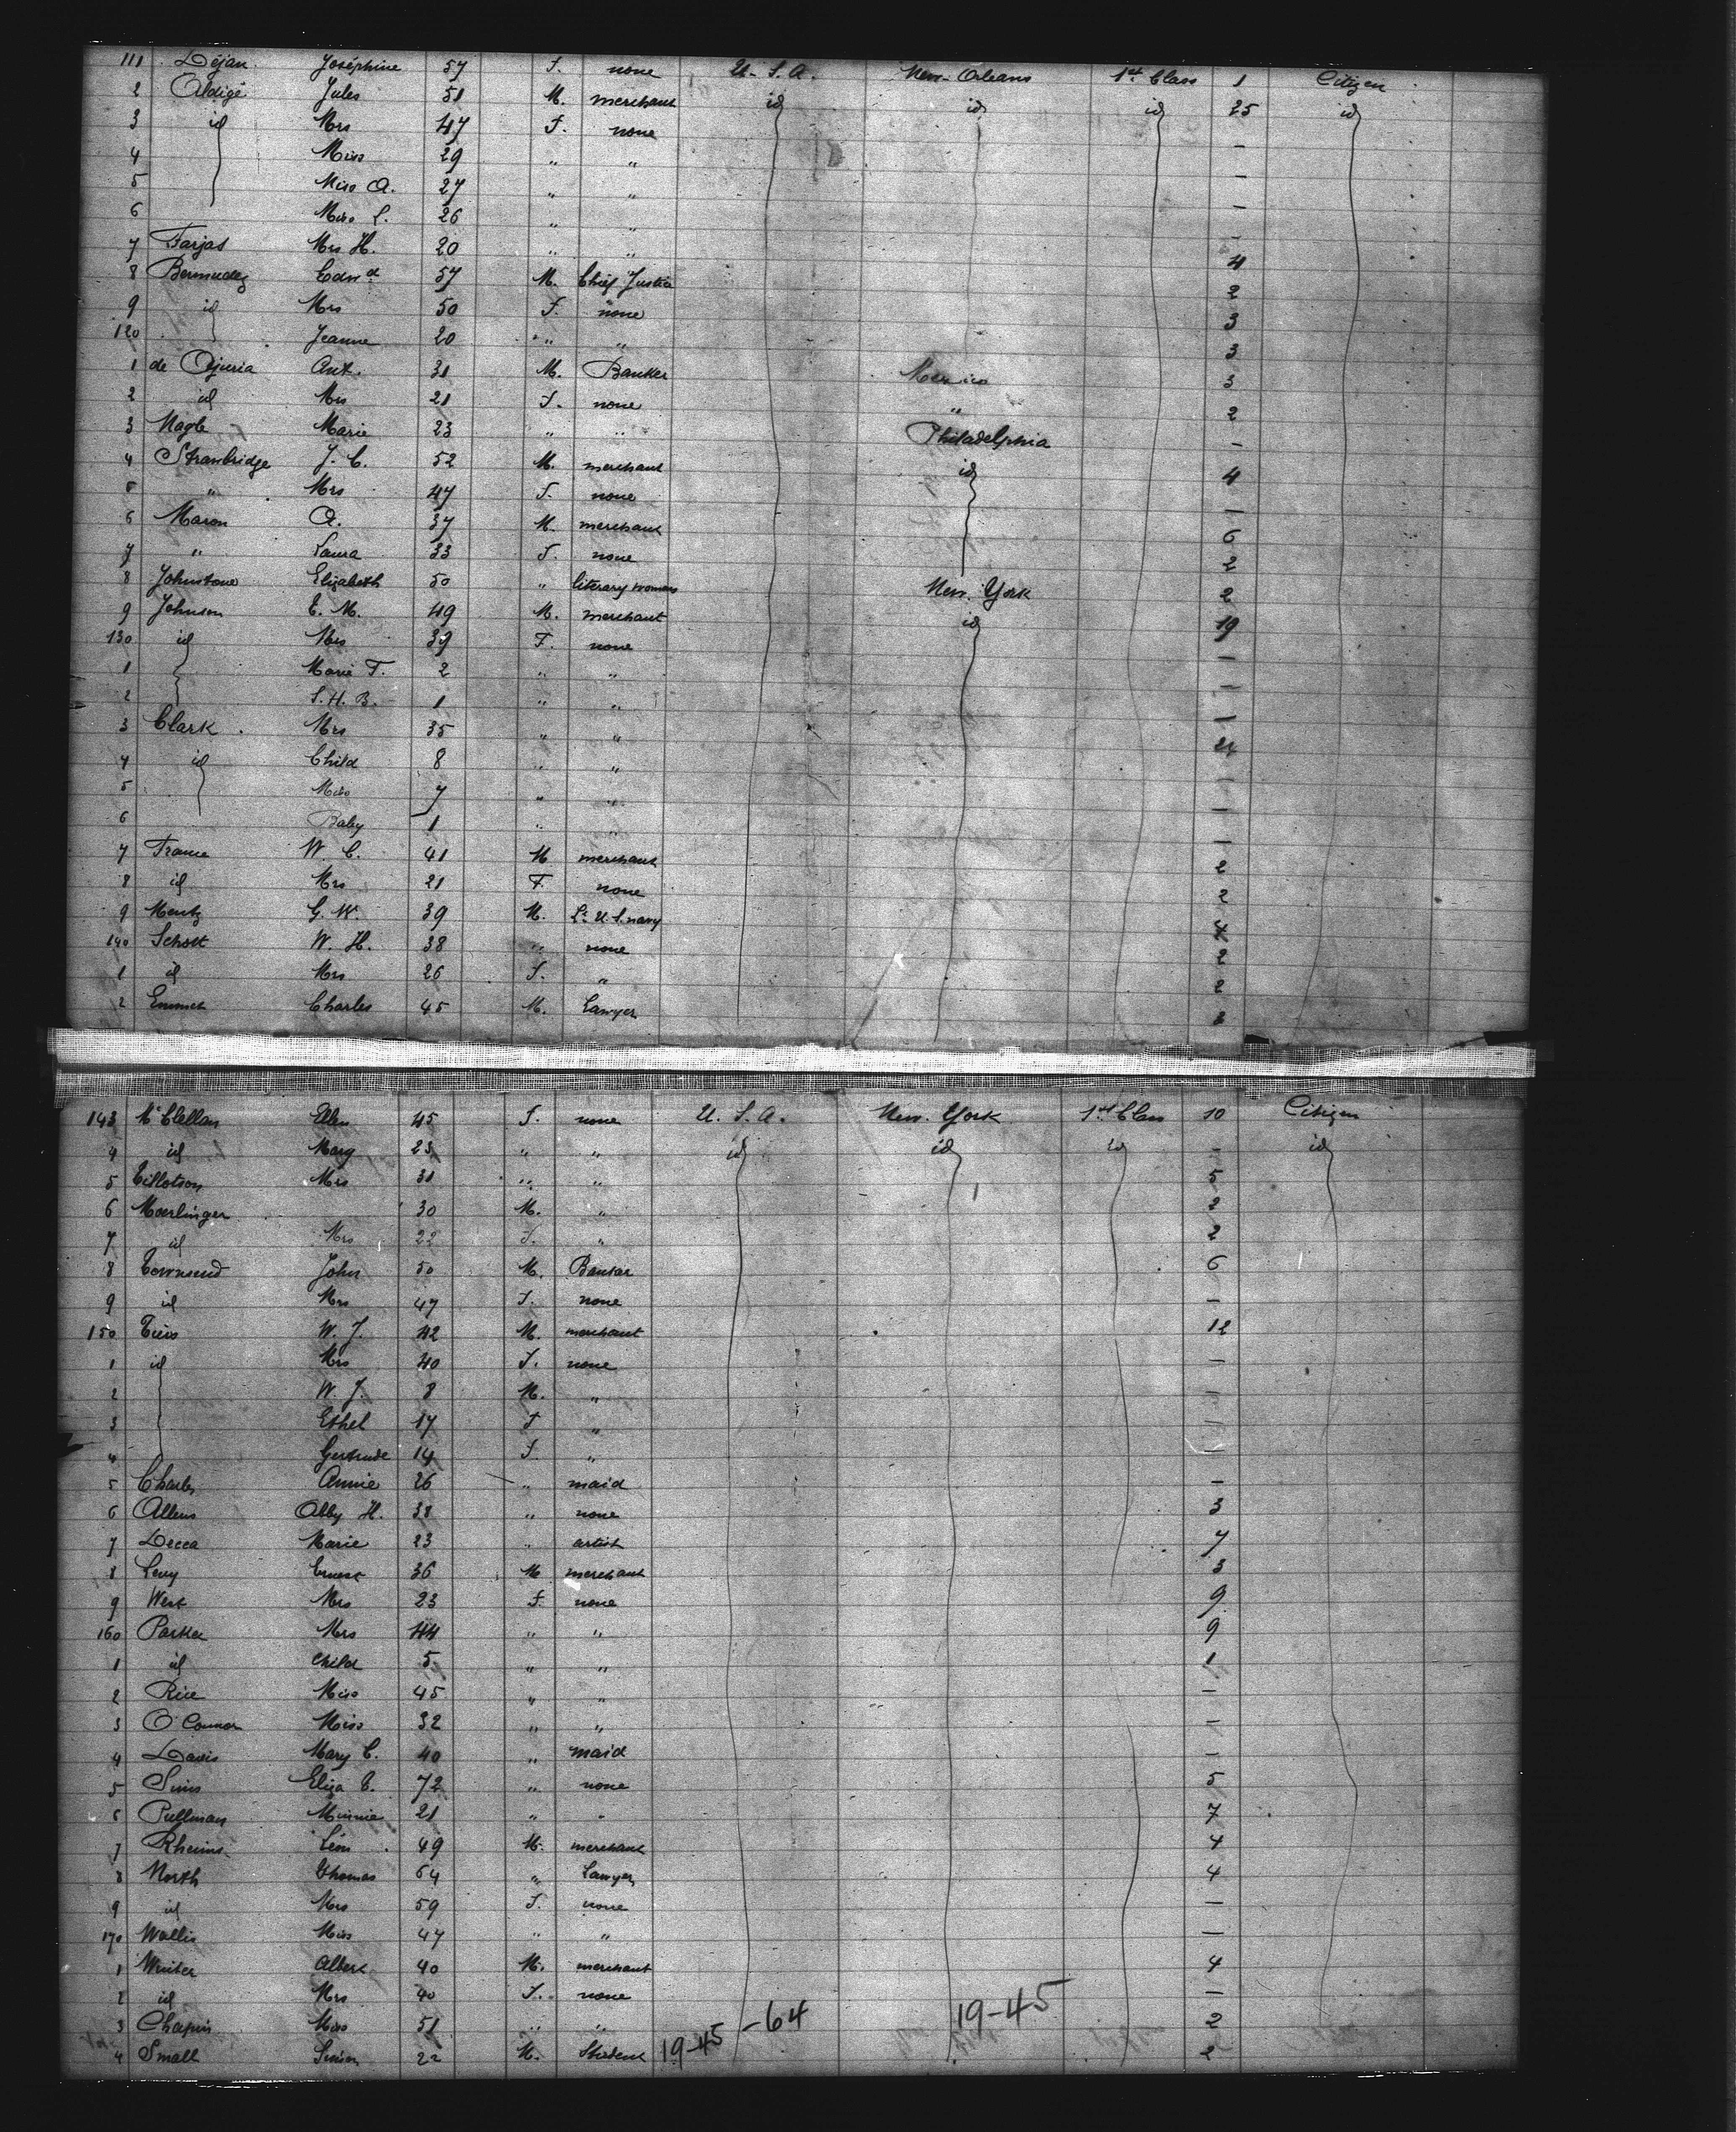 111 Déjan Joséphine 57 F. none U.S.A. New-Orleans 1st Class 1 Citizen
2 Aldigé Jules 51 M. merchant id id id 25 id
3 id Mrs 47 F. none —
4 Miss 29 " " —
5 Miss A. 27 " " —
6 Miss L. 26 " " —
7 Farjas Mrs H. 20 " " 4
8 Bermudez Edmd 57 M. Chief Justice 2
9 id Mrs 50 F. none 3
120 Jeanne 20 " " 3
1 de Ajuria Ant. 31 M. Banker Mexico 3
2 id Mrs 21 F. none " 2
3 Nagle Marie 23 " " Philadelphia —
4 Strawbridge J. C. 52 M. merchant id 4
5 " Mrs 47 F. none —
6 Mason A. 37 M. merchant 6
7 " Laura 33 F. none 2
8 Johnstone Elizabeth 50 " literary woman New. York 2
9 Johnson E. M. 49 M. merchant id 19
130 id Mrs 39 F. none —
1 Marie F. 2 " " —
2 S. H. B. 1 " " —
3 Clark Mrs 35 " " 21
4 id Child 8 " " —
5 Miss 7 " " —
6 Baby 1 " " —
7 France W C. 41 M merchant 2
8 id Mrs 21 F. none 2
9 Mentz G. W. 39 M. Lt U.S. navy
140 Schott W. H. 38 " none 2
1 id Mrs 26 F. " 2
2 Emmet Charles 45 M. Lawyer 3
143 McClellan Ellen 45 F. none U.S.A. New. York 1st Class 10 Citizen
4 id Mary 23 " " id id id — id
5 Tillotson Mrs 31 " " 5
6 Moerlinger 30 M. " 2
7 id Mrs 22 F. " 2
8 Townsend John 50 M. Banker 6
9 id Mrs 47 F. none —
150 Tiers W. J. 42 M. merchant 12
1 id Mrs 40 F. none —
2 W. J. 8 M. " —
3 Ethel 17 F " —
4 Gertrude 14 F. " —
5 Charles Annie 26 " maid —
6 Allens Abby H. 38 " none 3
7 Decca Marie 23 " artist 7
8 Levy Ernest 36 M merchant 3
9 West Mrs 23 F. none 9
160 Parker Mrs 44 " " 9
1 id Child 5 " " 1
2 Rice Miss 45 " " —
3 O'Connor Miss 32 " " —
4 Davis Mary C. 40 " maid —
5 Sims Eliza E. 72 " none 5
6 Pullman Minnie 21 " " 7
7 Rheims Léon 49 M. merchant 4
8 North Thomas 64 " Lawyer 4
9 id Mrs 59 F. none —
170 Wallis Miss 47 " " —
1 Winter Albert 40 M. merchant 4
2 id Mrs 40 F. none —
3 Chapin Miss 51 " " -64 19-45 2
4 Small Simon 22 M. Student 19-45 2